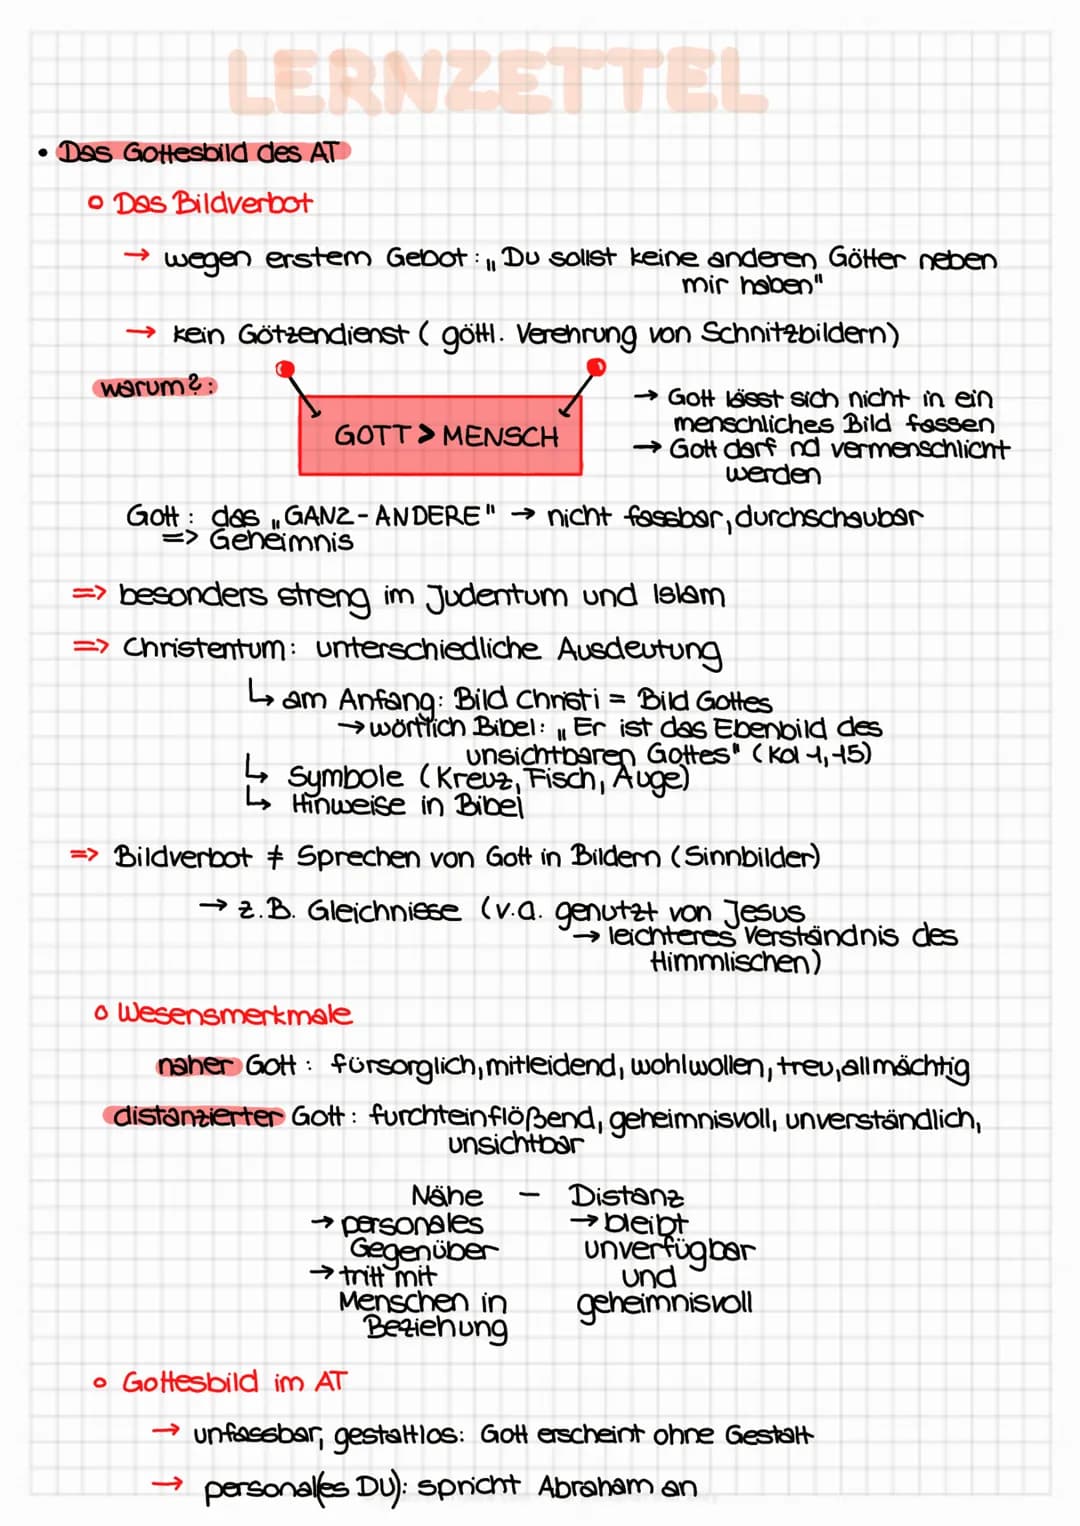 LERNZETTEL
• Das Gottesbild des AT
o Das Bildverbot
→ wegen erstem Gebot: „Du sollst keine anderen Götter neben
mir haben"
→ kein Götzendienst (göttl. Verehrung von Schnitzbildern)
warum?:
GOTT > MENSCH
→ Gott lässt sich nicht in ein
menschliches Bild fassen
→ Gott darf nd vermenschlicht
werden
Gott: das „GANZ-ANDERE" → nicht fassbar, durchschaubar
=> Geheimnis
=> besonders streng im Judentum und Islam
=> Christentum: unterschiedliche Ausdeutung
↳ am Anfang: Bild Christi = Bild Gottes
→ wörtlich Bibel: „Er ist das Ebenbild des
unsichtbaren Gottes" (Kol 1,15)
↳ Symbole (Kreuz, Fisch, Auge)
↳ Hinweise in Bibel
=> Bildverbot ≠ Sprechen von Gott in Bildern (Sinnbilder)
→ z.B. Gleichnisse (v.a. genutzt von Jesus
→ leichteres Verständnis des
Himmlischen)
o Wesensmerkmale
naher Gott: fürsorglich, mitleidend, wohlwollen, treu, allmächtig
distanzierter Gott: furchteinflößend, geheimnisvoll, unverständlich,
unsichtbar
Nähe – Distanz
→ personales → bleibt
Gegenüber unverfügbar
→ tritt mit und
Menschen in geheimnisvoll
Beziehung
o Gottesbild im AT
→ unfassbar, gestaltlos: Gott erscheint ohne Gestalt
→ personal(es DU): spricht Abraham an